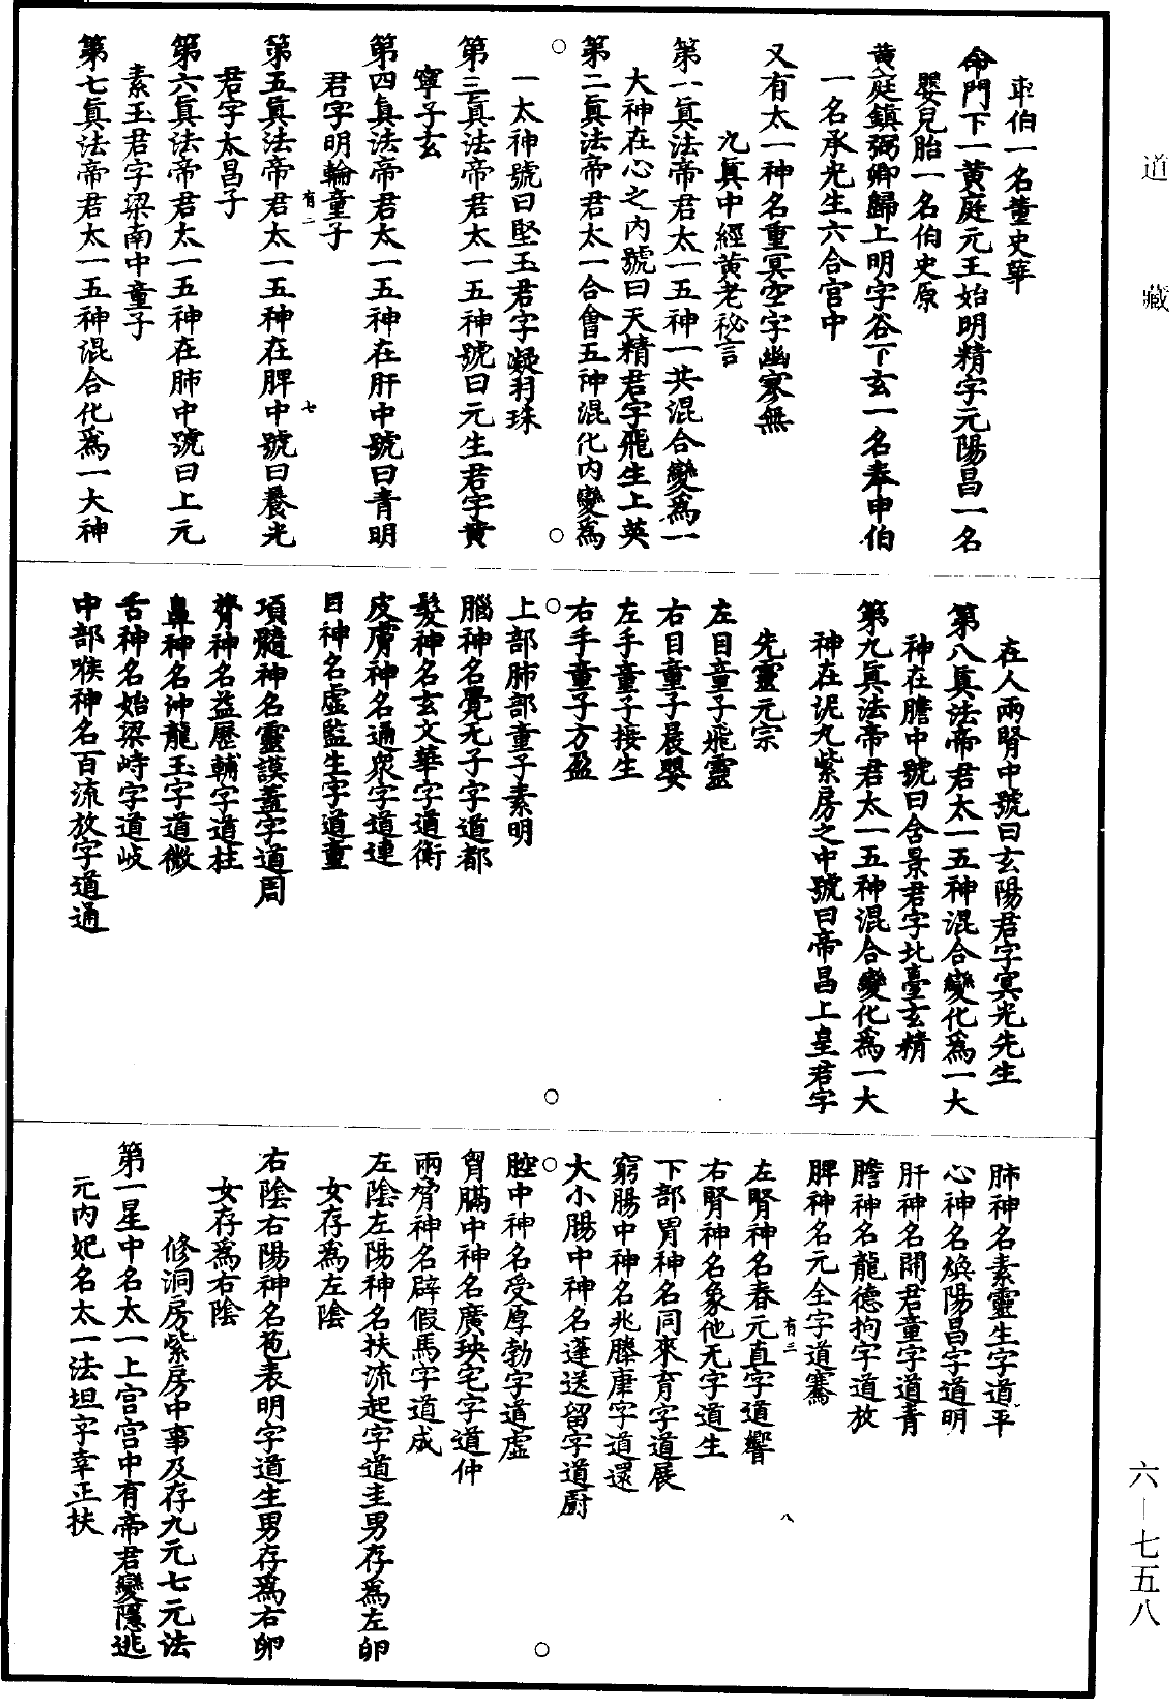 道藏
𠀘伯一名董史華
命門下一黄庭元王始明精字元陽昌一名
嬰兒胎一名伯史原
黄庭鎮弼卿歸上明字谷下玄一名奉申伯
一名承光生六合宫中
又有太一神名重冥空字幽寥無
九真中經黄老秘言
第一真法帝君太一五神一共混合變為一
大神在心之内號曰天精君字飛生上英
第二真法帝君太一合會五神混化内變為
一太神號曰堅玉君字凝羽珠
第三真法帝君太一五神號曰元生君字黄
寧子玄
第四真法帝君太一五神在肝中號曰青明
君字明輪童子
有二 七
第五真法帝君太一五神在脾中號曰養光
君字太昌子
第六真法帝君太一五神在肺中號曰上元
素玉君字梁南中童子
第七真法帝君太一五神混合化為一大神
在人兩腎中號曰玄陽君字冥光先生
第八真法帝君太一五神混合變化為一大
神在膽中號曰含景君字北臺玄精
第九真法帝君太一五神混合變化為一大
神在泥丸紫房之中號曰帝昌上皇君字
先靈元宗
左目童子飛靈
右目童子晨嬰
左手童子接生
右手童子方盈
上部肺部童子素明
腦神名覺无子字道都
髮神名玄文華字道衡
皮膚神名通衆字道連
目神名虚監生字道童
項髓神名靈謨蓋字道周
膂神名益歷輔字道柱
鼻神名沖龍玉字道微
舌神名始梁峙字道岐
中部喉神名百流放字道通
肺神名素靈生字道平
心神名焕陽昌字道明
肝神名開君童字道青
膽神名龍德拘字道放
脾神名元全字道騫
有三 八
左腎神名春元直字道㗽
右腎神名象他无字道生
下部胃神名同來育字道展
窮腸中神名兆滕康字道還
大小腸中神名蓬送留字道廚
腔中神名受厚勃字道虚
胷膈中神名廣瑛宅字道仲
兩脅神名辟假馬字道成
左陰左陽神名扶流起字道圭男存為左卵
女存為左陰
右陰右陽神名苞表明字道生男存為右卵
女存為右陰
修洞房紫房中事及存九元七元法
第一星中名太一上宫宫中有帝君變隱逃
元内妃名太一法坦字幸正扶
六—七五八